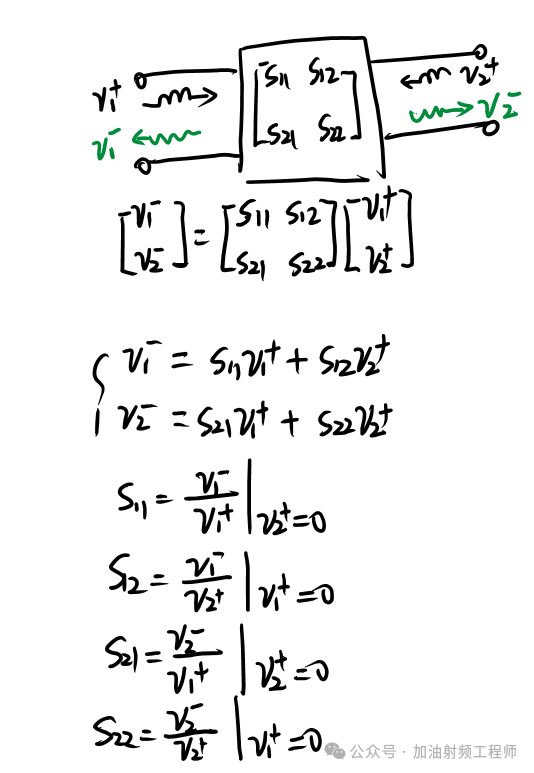 S₁₁ S₁₂
V₁⁺ V₂⁺
V₁⁻ V₂⁻
S₂₁ S₂₂
[V₁⁻ V₂⁻] = [S₁₁ S₁₂ S₂₁ S₂₂] [V₁⁺ V₂⁺]
V₁⁻ = S₁₁V₁⁺ + S₁₂V₂⁺
V₂⁻ = S₂₁V₁⁺ + S₂₂V₂⁺
S₁₁ = V₁⁻/V₁⁺ | V₂⁺=0
S₁₂ = V₁⁻/V₂⁺ | V₁⁺=0
S₂₁ = V₂⁻/V₁⁺ | V₂⁺=0
S₂₂ = V₂⁻/V₂⁺ | V₁⁺=0
公众号 · 加油射频工程师